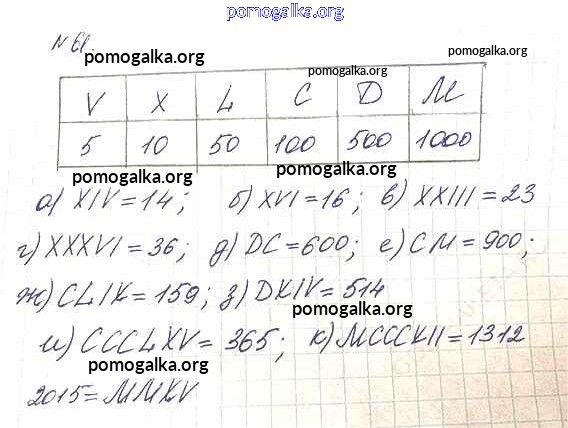 pomogalka.org
№ 61.
pomogalka.org
pomogalka.org
pomogalka.org
V X L C D M
5 10 50 100 500 1000
pomogalka.org
pomogalka.org
а) XIV = 14; б) XVI = 16; в) XXIII = 23
г) XXXVI = 36; д) DC = 600; е) CM = 900;
ж) CLIX = 159; з) DXIV = 514
pomogalka.org
и) CCCLXV = 365; к) MCCCXII = 1312
pomogalka.org
pomogalka.org
2015 = MMXV